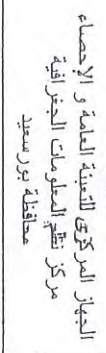 الجهاز المركزى للتعبئة العامة و الإحصاء
مركز نظم المعلومات الجغرافية
محافظة بورسعيد